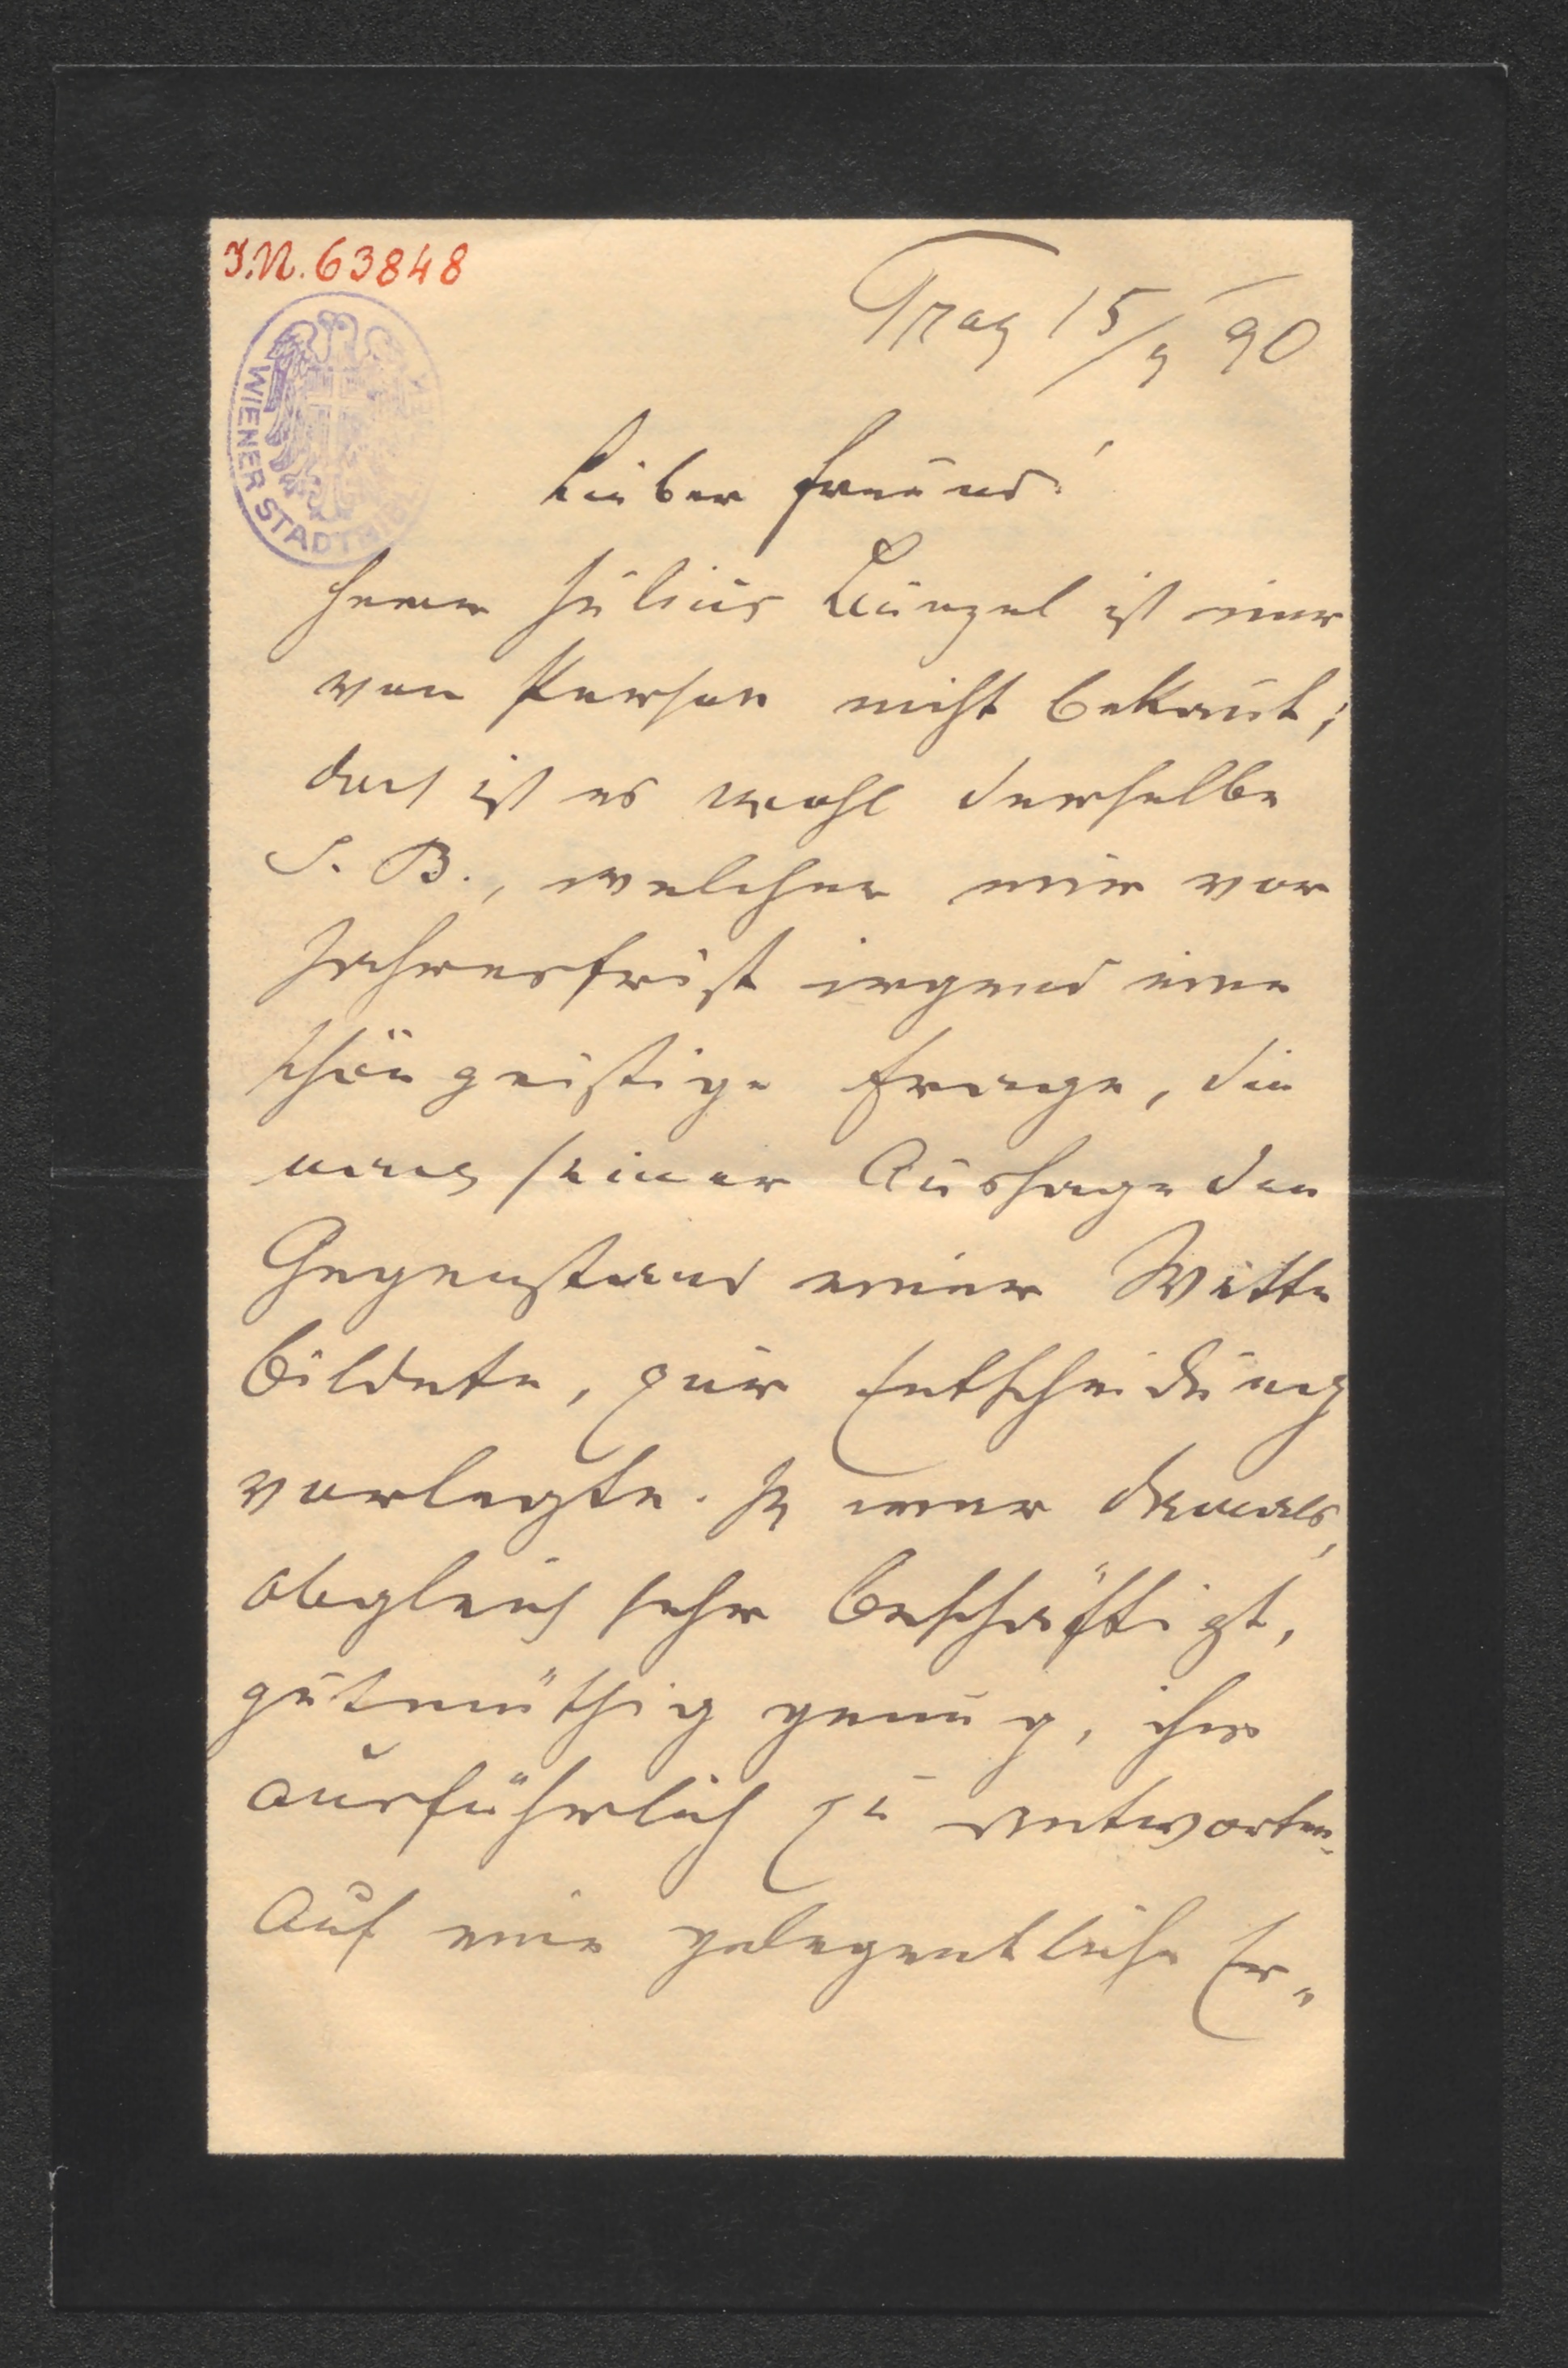 I.N. 63848
Prag 15/9 90
WIENER STADTBIBL
Lieber Freund!
Herr Julius Bunzel ist mir
von Person nicht bekannt;
doch ist es wohl derselbe
J. B., welcher mir vor
Jahresfrist irgend eine
schöngeistige Frage, die
nach seiner Aussage den
Gegenstand einer Wette
bildete, zur Entscheidung
vorlegte. Ich war damals,
obgleich sehr beschäftigt,
gutmüthig genug, ihm
ausführlich zu antworten.
Auf eine gelegentliche Er„